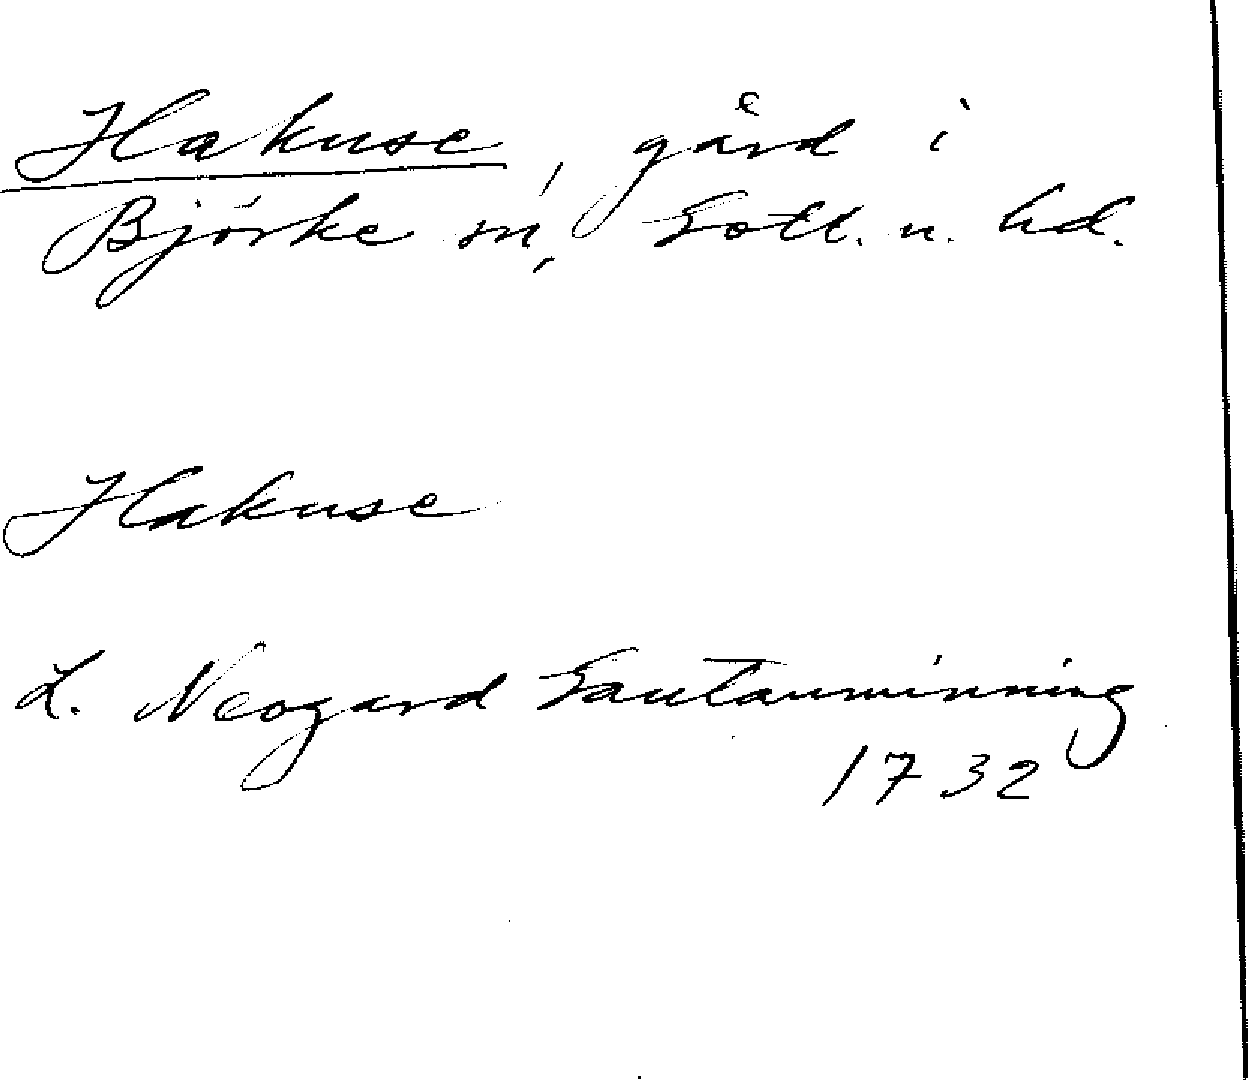 Hakuse, gård i
Björke sn, Gotl. n. hd.
Hakuse
L. Neogard Gautauminning
1732